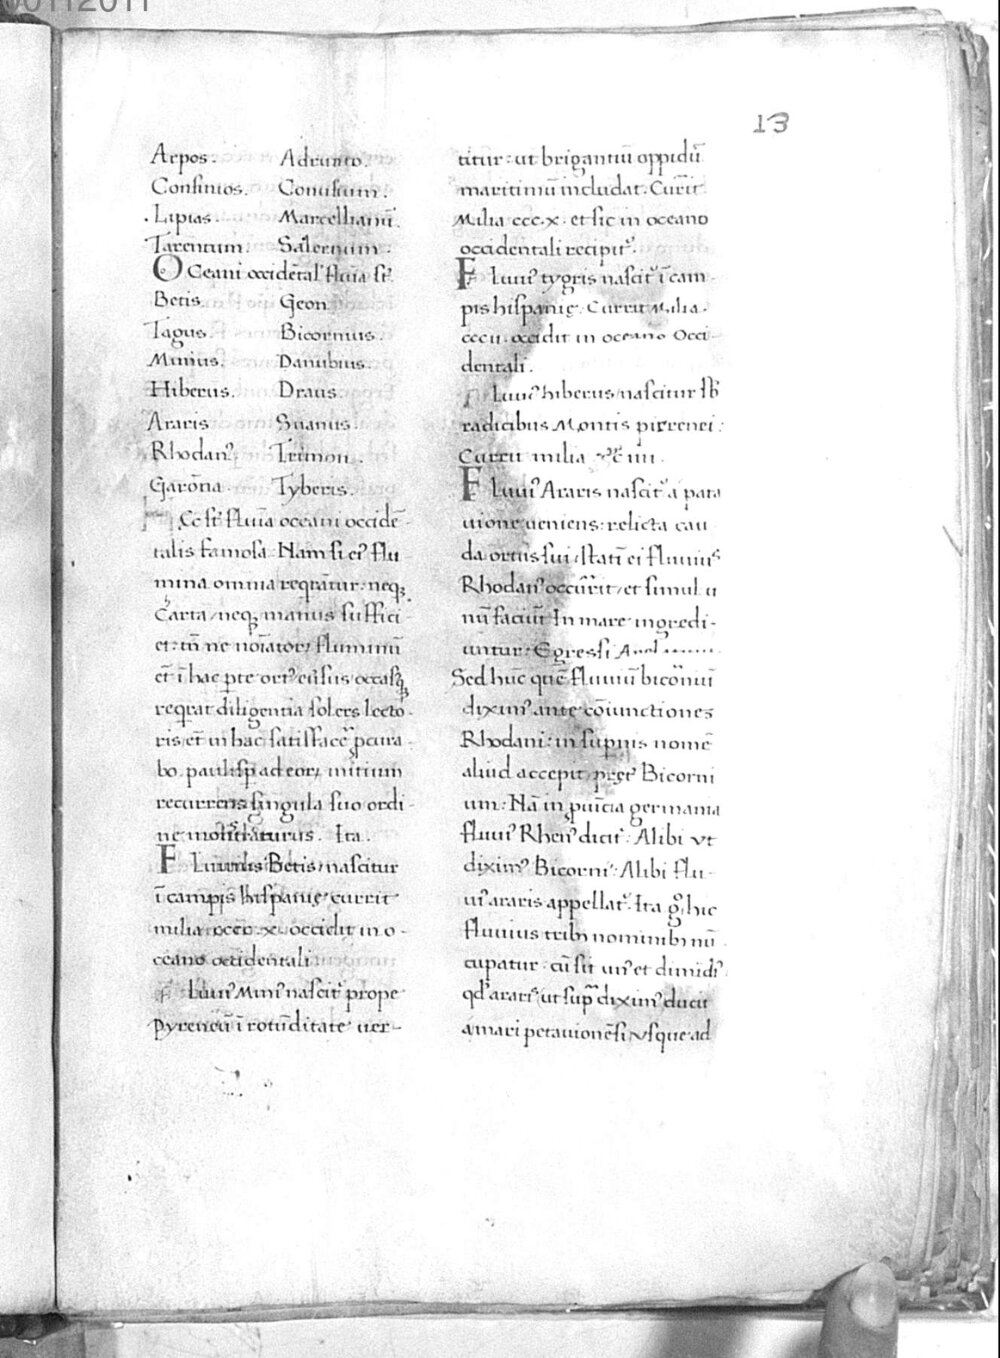 13
Arpos. Adrunto.
Consinios. Conusium.
Lipias Marcellianū.
Tarentum. Salernum.
OCeani occidētal' fluīa st̄.
Betis. Geon
Tagus. Bicornius.
Minius. Danubius.
Hiberus. Draus.
Araris Suanus.
Rhodan᾽ Trimon.
Garōna. Tyberis.
HEc st̄ fluīa oceani occidē-
talis famosa. Nam si ei᾽ flu
mina omnia reqrātur. neq;
carta, neq; manus suffici
et. tn̄ ne noīator; fluminū
et ī hac pte ort᾽ cūsus occasq;
reqrat diligentia solers lecto-
ris, et in hac satisfacē pcura-
bo. paulisp ad eor; initium
recurrens singula suo ordi-
ne Ita.
FLuuius Betis, nascitur
ī campis hispanię, currit
milia occidit in o-
ceano occidentali
FLuui᾽ Mini᾽ nascit᾽ prope
pyreneū ī rotūditate uer-
titur. ut brigantiū oppidū
maritimū includat. Curīt
Milia ccc.x. et sic in oceano
occidentali recipit᾽.
FLuui᾽ tygris nascit᾽ ī cam-
pis hispanię. Currit Milia.
cccii. occidit in oceano Occi-
dentali.
FLuui᾽ hiberus, nascitur sb̄
radicibus Montis pirrenei:
Currit milia
FLuui᾽ Araris nascit᾽ a pata
uione ueniens: relicta cau
da ortus sui, statī ei fluuius
Rhodan᾽ occurrit, et simul u
nū faciūt In mare ingredi-
untur. Egressi
Sed hūc quē fluuiū bicorniū
dixim᾽ ante cōiunctiones
Rhodani. in supnis nomē
aliud accepit, Bicorni
um. Nā in puīcia germania
fluui᾽ Rhen᾽ dicit᾽. Alibi vt
dixim᾽ Bicorni᾽. Alibi flu-
ui᾽ araris appellat᾽. Ita g̊, hic
fluuius trib; nominib; nū
cupatur. cū sit un᾽ et dimidi᾽,
qd̄ arari᾽, ut supa dixim᾽ ducit
a mari petauionēsi, vsque ad